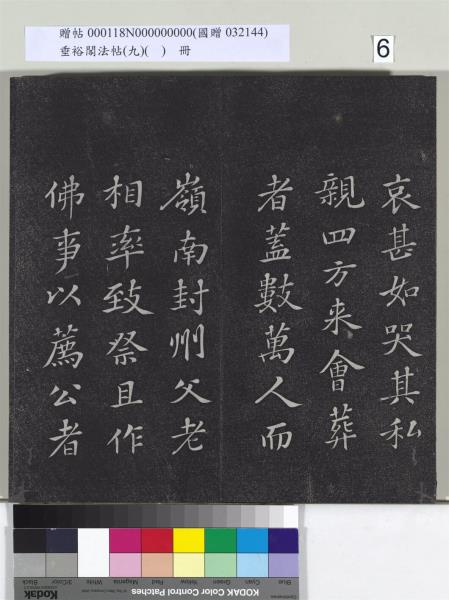 贈帖 000118N000000000(國贈 032144)
垂裕閣法帖(九)( ) 冊
6
哀甚如哭其私
親四方來會葬
者蓋數萬人而
嶺南封州父老
相率致祭且作
佛事以薦公者
Kodak
KODAK Color Control Patches
Blue
Cyan
Green
Yellow
Red
Magenta
White
3/Color
Black